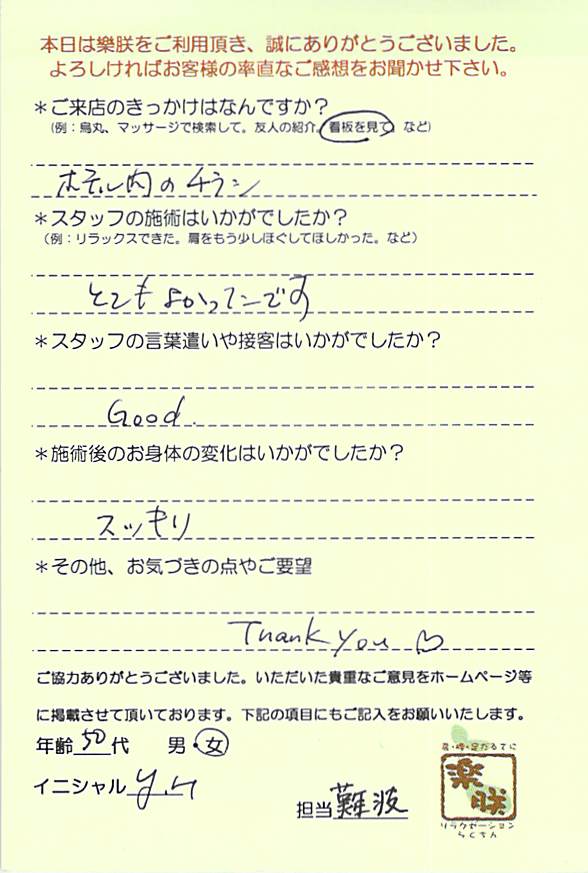 本日は樂朕をご利用頂き、誠にありがとうございました。
よろしければお客様の率直なご感想をお聞かせ下さい。
＊ご来店のきっかけはなんですか？
（例：烏丸、マッサージで検索して。友人の紹介。看板を見て。など）
ホテル内のチラシ
＊スタッフの施術はいかがでしたか？
（例：リラックスできた。肩をもう少しほぐしてほしかった。など）
とてもよかったです
＊スタッフの言葉遣いや接客はいかがでしたか？
Good.
＊施術後のお身体の変化はいかがでしたか？
スッキリ
＊その他、お気づきの点やご要望
Thank you ♡
ご協力ありがとうございました。いただいた貴重なご意見をホームページ等
に掲載させて頂いております。下記の項目にもご記入をお願いいたします。
年齢50代 男・女
イニシャル y.n
担当 難波
楽朕
リラクゼーション
らくちん